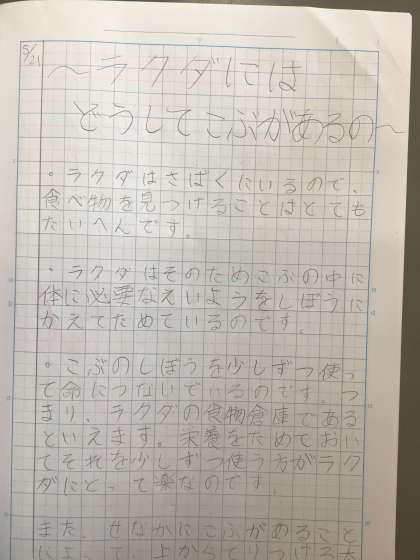 5/21
～ラクダには
どうしてこぶがあるの～
・ラクダはさばくにいるので、
食べ物を見つけることはとても
たいへんです。
・ラクダはそのためこぶの中に
体に必要なえいようをしぼうに
かえてためているのです。
・こぶのしぼうを少しずつ使っ
て命につないでいるのです。つ
まり、ラクダの食物倉庫である
といえます。栄養をためておい
てそれを少しずつ使う方がラク
ダにとって楽なのです。
また、せなかにこぶがあること
によって、上から